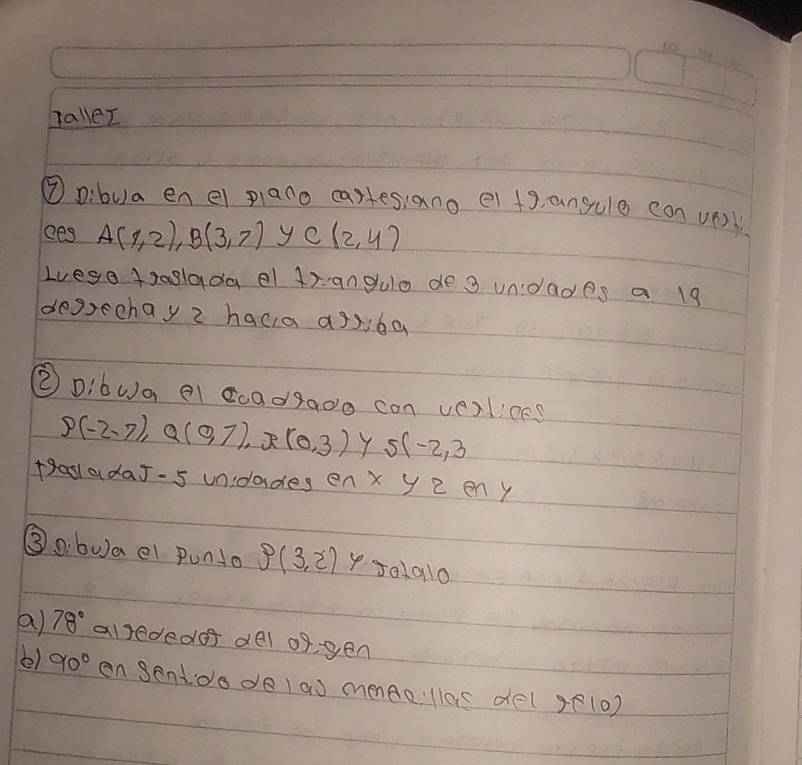 Taller
① Dibuja en el plano cartesiano el triangulo con verti
ces A(1,2), B(3,2) y C(2,4)
Luego traslada el triangulo de 3 unidades a la
derrecha y 2 hacia arriba
② Dibuja el cuadrado con vertices
P(-2-7), Q(0,7), R(0,3) y S(-2,3
trasladas -5 unidades en x y 2 en y
③ Dibuja el punto P(3,2) y rotalo
a) 78° alrededor del origen
b) 90° en sentido de las menecillas del reloj